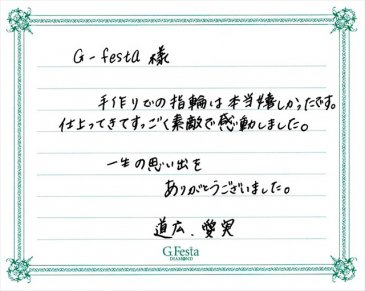 G-festa 様
手作りでの指輪は本当嬉しかったです。
仕上ってきてすっごく素敵で感動しました。
一生の思い出を
ありがとうございました。
道広、愛実
G.Festa
DIAMOND